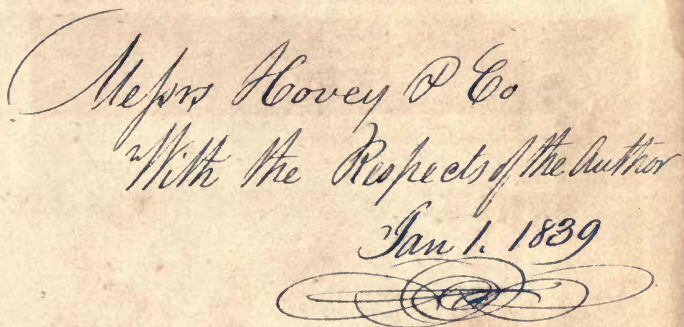 Messrs Hovey & Co
With the Respects of the Author
Jan 1. 1839